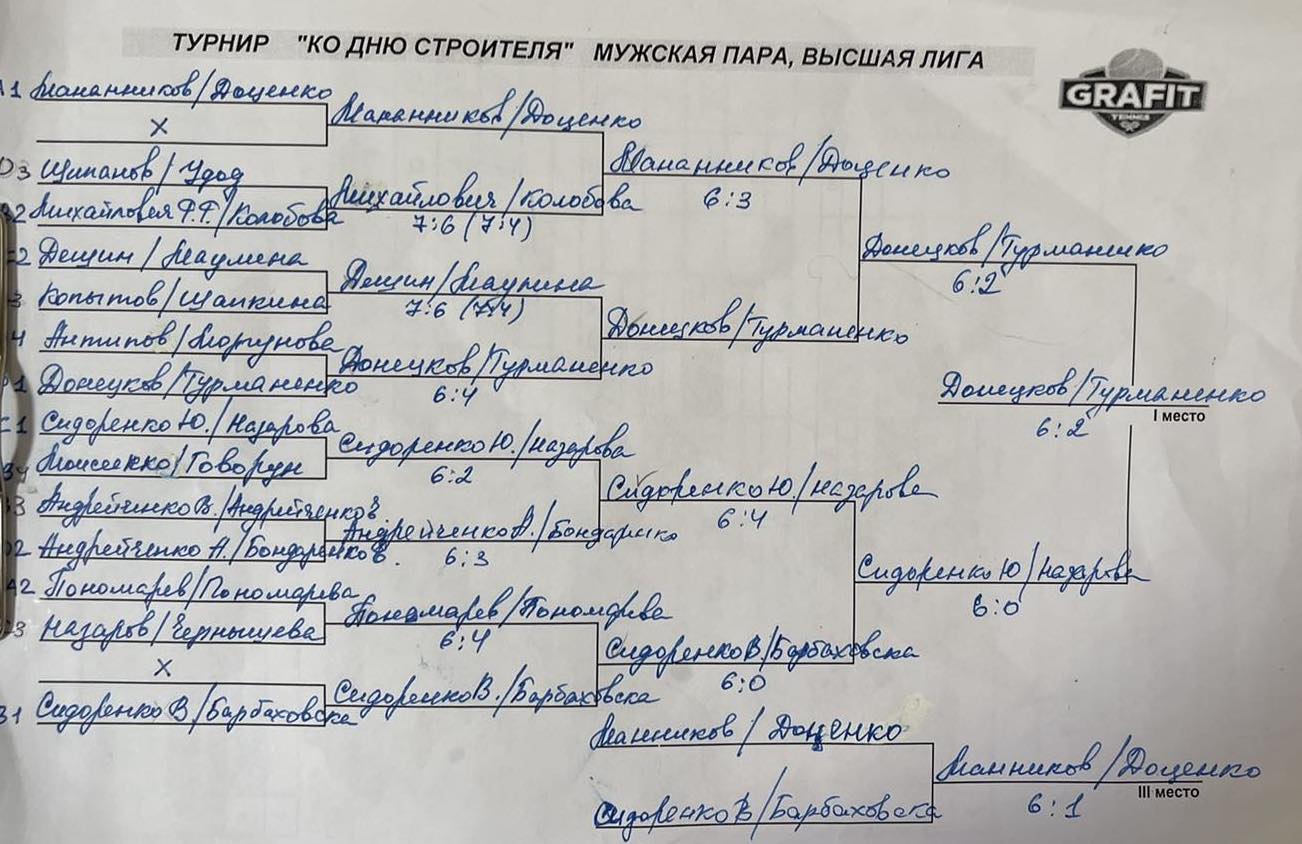 ТУРНИР "КО ДНЮ СТРОИТЕЛЯ" МУЖСКАЯ ПАРА, ВЫСШАЯ ЛИГА
GRAFIT
TENNIS
A1 Мананников/Доценко
X
D3 Щипанов/Удод
Михайлович Г.Г./Колобова
Дещин/Маумена
Копытов/Щапкина
Антипов/Моргунова
Донецков/Турманенко
Сидоренко Ю./Назарова
Моисеенко/Говорун
Андрейченко В./Андрейченков
Андрейченко А./Бондаренко В.
A2 Пономарев/Пономарева
Назаров/Чернышева
X
B1 Сидоренко В/Барбаховска
Мананников/Доценко
Михайлович/Колобова
7:6 (7:4)
Дещин/Маупина
7:6 (7:4)
Донецков/Турманенко
6:4
Сидоренко Ю./Назарова
6:2
Андрейченко А./Бондаренко
6:3
Пономарев/Пономарева
6:4
Сидоренко В./Барбаховска
Мананников/Доценко
6:3
Донецков/Турманенко
Сидоренко Ю./Назарова
6:4
Сидоренко В/Барбаховска
6:0
Донецков/Турманенко
6:2
Сидоренко Ю/Назарова
6:0
Донецков/Турманенко
6:2
I место
Манников/Доценко
Сидоренко В/Барбаховска
Манников/Доценко
6:1
III место